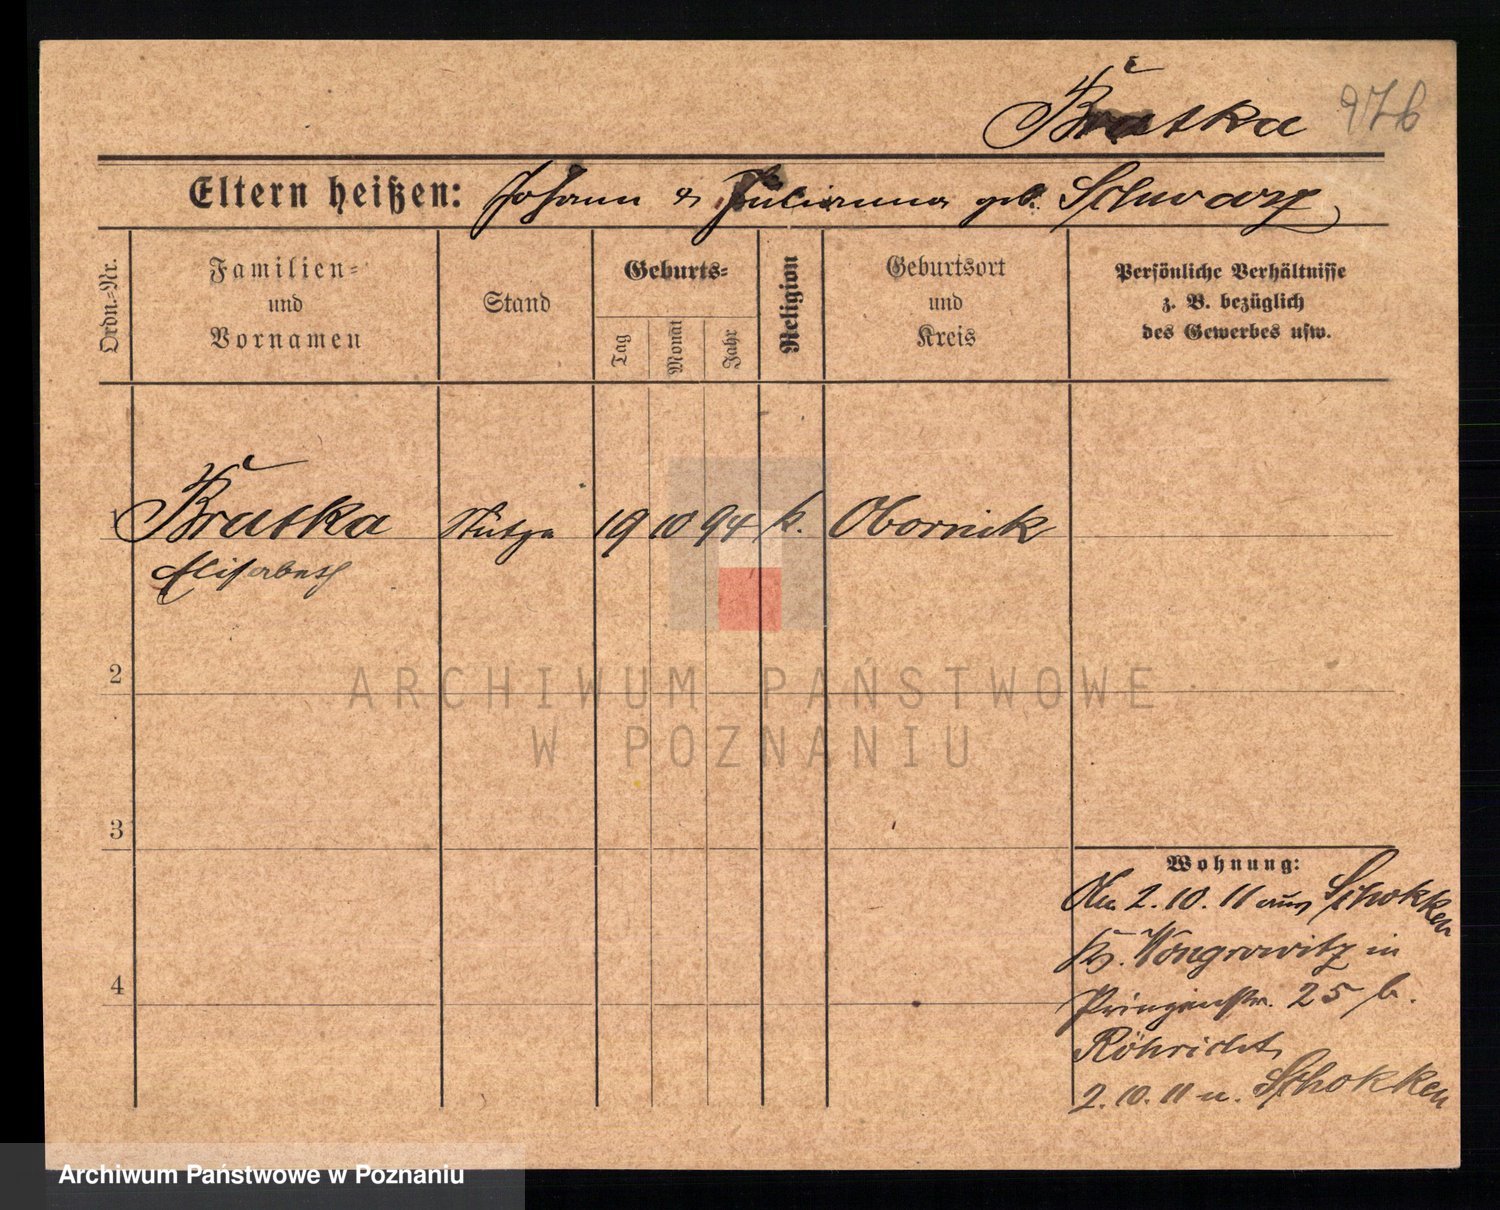 Bratka 976
Eltern heißen: Johann & Julianna geb. Schwarz
Ordn.-Nr.
Familien-
und
Vornamen
Stand
Geburts-
Tag
Monat
Jahr
Religion
Geburtsort
und
Kreis
Persönliche Verhältnisse
z. B. bezüglich
des Gewerbes usw.
1 Bratka Stütze 19 10 94 k. Obornik
Elisabeth
2
3
4
Wohnung:
2.10.11 aus Schokken
Kr. Wongrowitz in
Prinzenstr. 25 b.
Röhricht
2.10.11 n. Schokken
ARCHIWUM PAŃSTWOWE
W POZNANIU
Archiwum Państwowe w Poznaniu